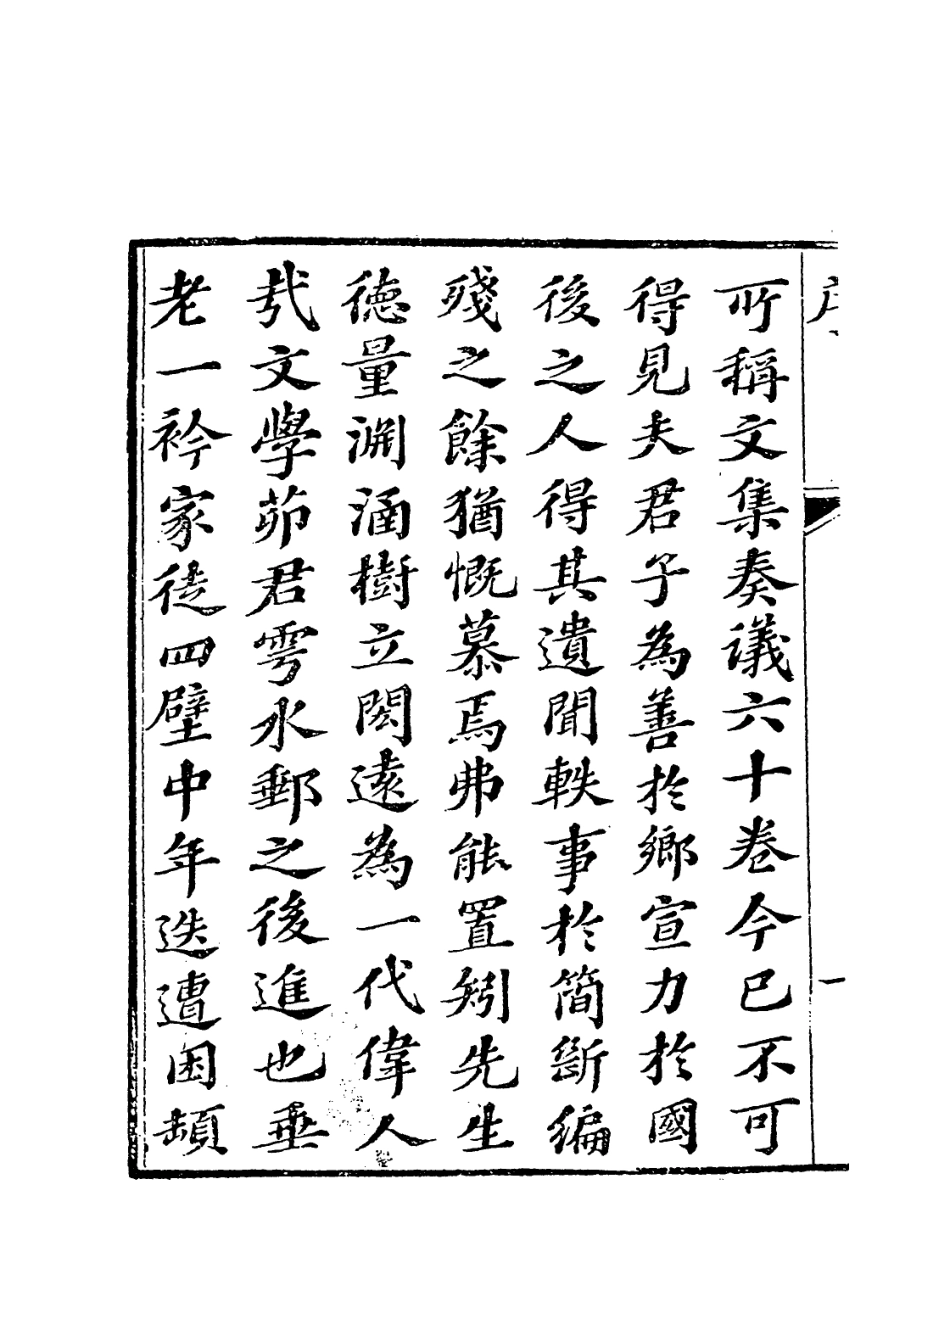 所稱文集奏議六十卷今已不可
得見夫君子為善於鄉宣力於國
後之人得其遺聞軼事於簡斷編
殘之餘猶慨慕焉弗能置矧先生
德量淵涵樹立閎遠為一代偉人
㢤文學茆君雩水郵之後進也垂
老一衿家徒四壁中年迭遭困頓